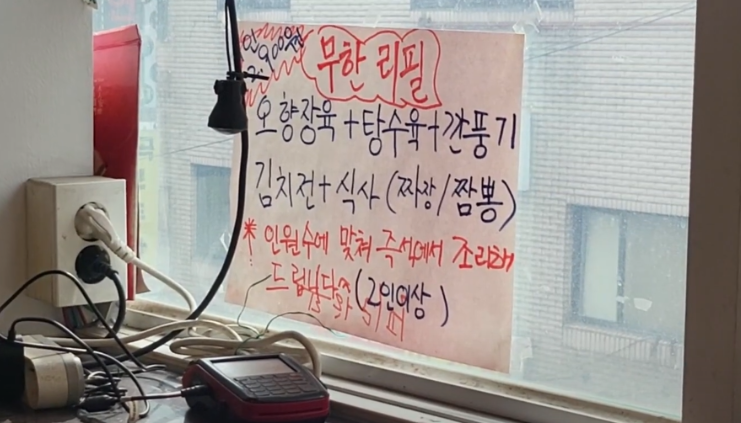 무한 리필
오향장육+탕수육+깐풍기
김치전+식사(짜장/짬뽕)
* 인원수에 맞춰 즉석에서 조리해
드립니다 (2인이상)